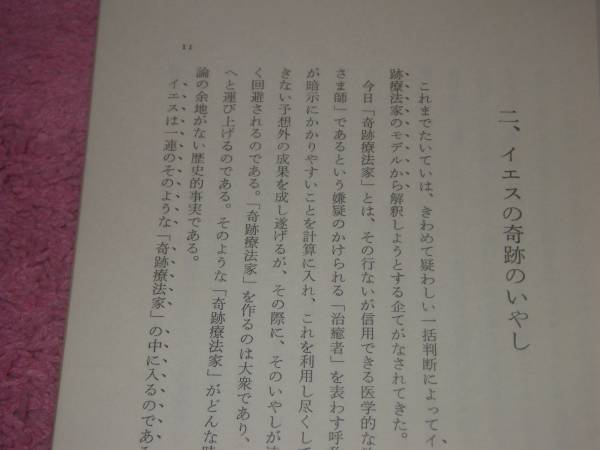 二、イエスの奇跡のいやし
これまでたいていは、きわめて疑わしい一括判断によってイ
跡療法家のモデルから解釈しようとする企てがなされてきた。
今日「奇跡療法家」とは、その行ないが信用できる医学的な
さま師」であるという嫌疑のかけられる「治癒者」を表わす呼
が暗示にかかりやすいことを計算に入れ、これを利用し尽くして
きない予想外の成果を成し遂げるが、その際に、そのいやしが
く回避されるのである。「奇跡療法家」を作るのは大衆であり、
へと運び上げるのである。そのような「奇跡療法家」がどんな
論の余地がない歴史的事実である。
イエスは一連のそのような「奇跡療法家」の中に入るのであ
11